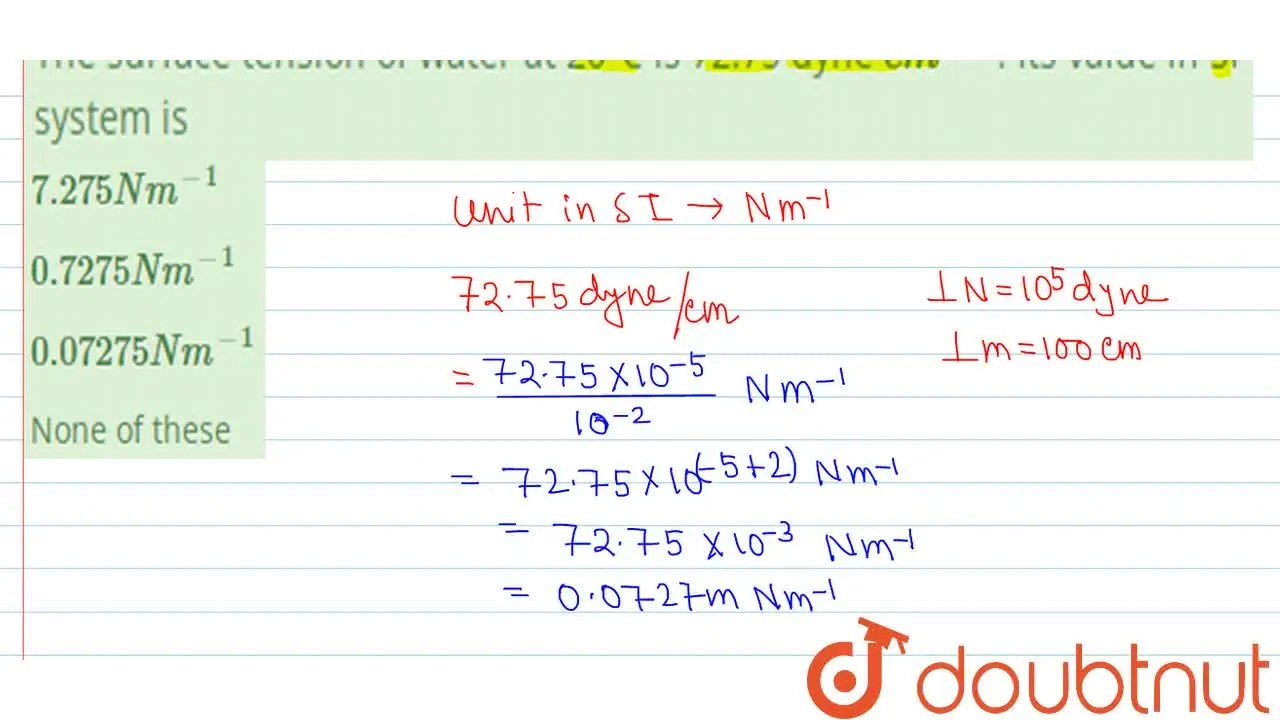 The surface tension of water at 20°C is 72.75 dyne cm . Its value in SI
system is
7.275Nm⁻¹
0.7275Nm⁻¹
0.07275Nm⁻¹
None of these
Unit in SI → Nm⁻¹
72.75 dyne/cm
1N = 10⁵ dyne
1m = 100 cm
= 72.75 × 10⁻⁵ / 10⁻² Nm⁻¹
= 72.75 × 10⁽⁻⁵⁺²⁾ Nm⁻¹
= 72.75 × 10⁻³ Nm⁻¹
= 0.0727m Nm⁻¹
doubtnut